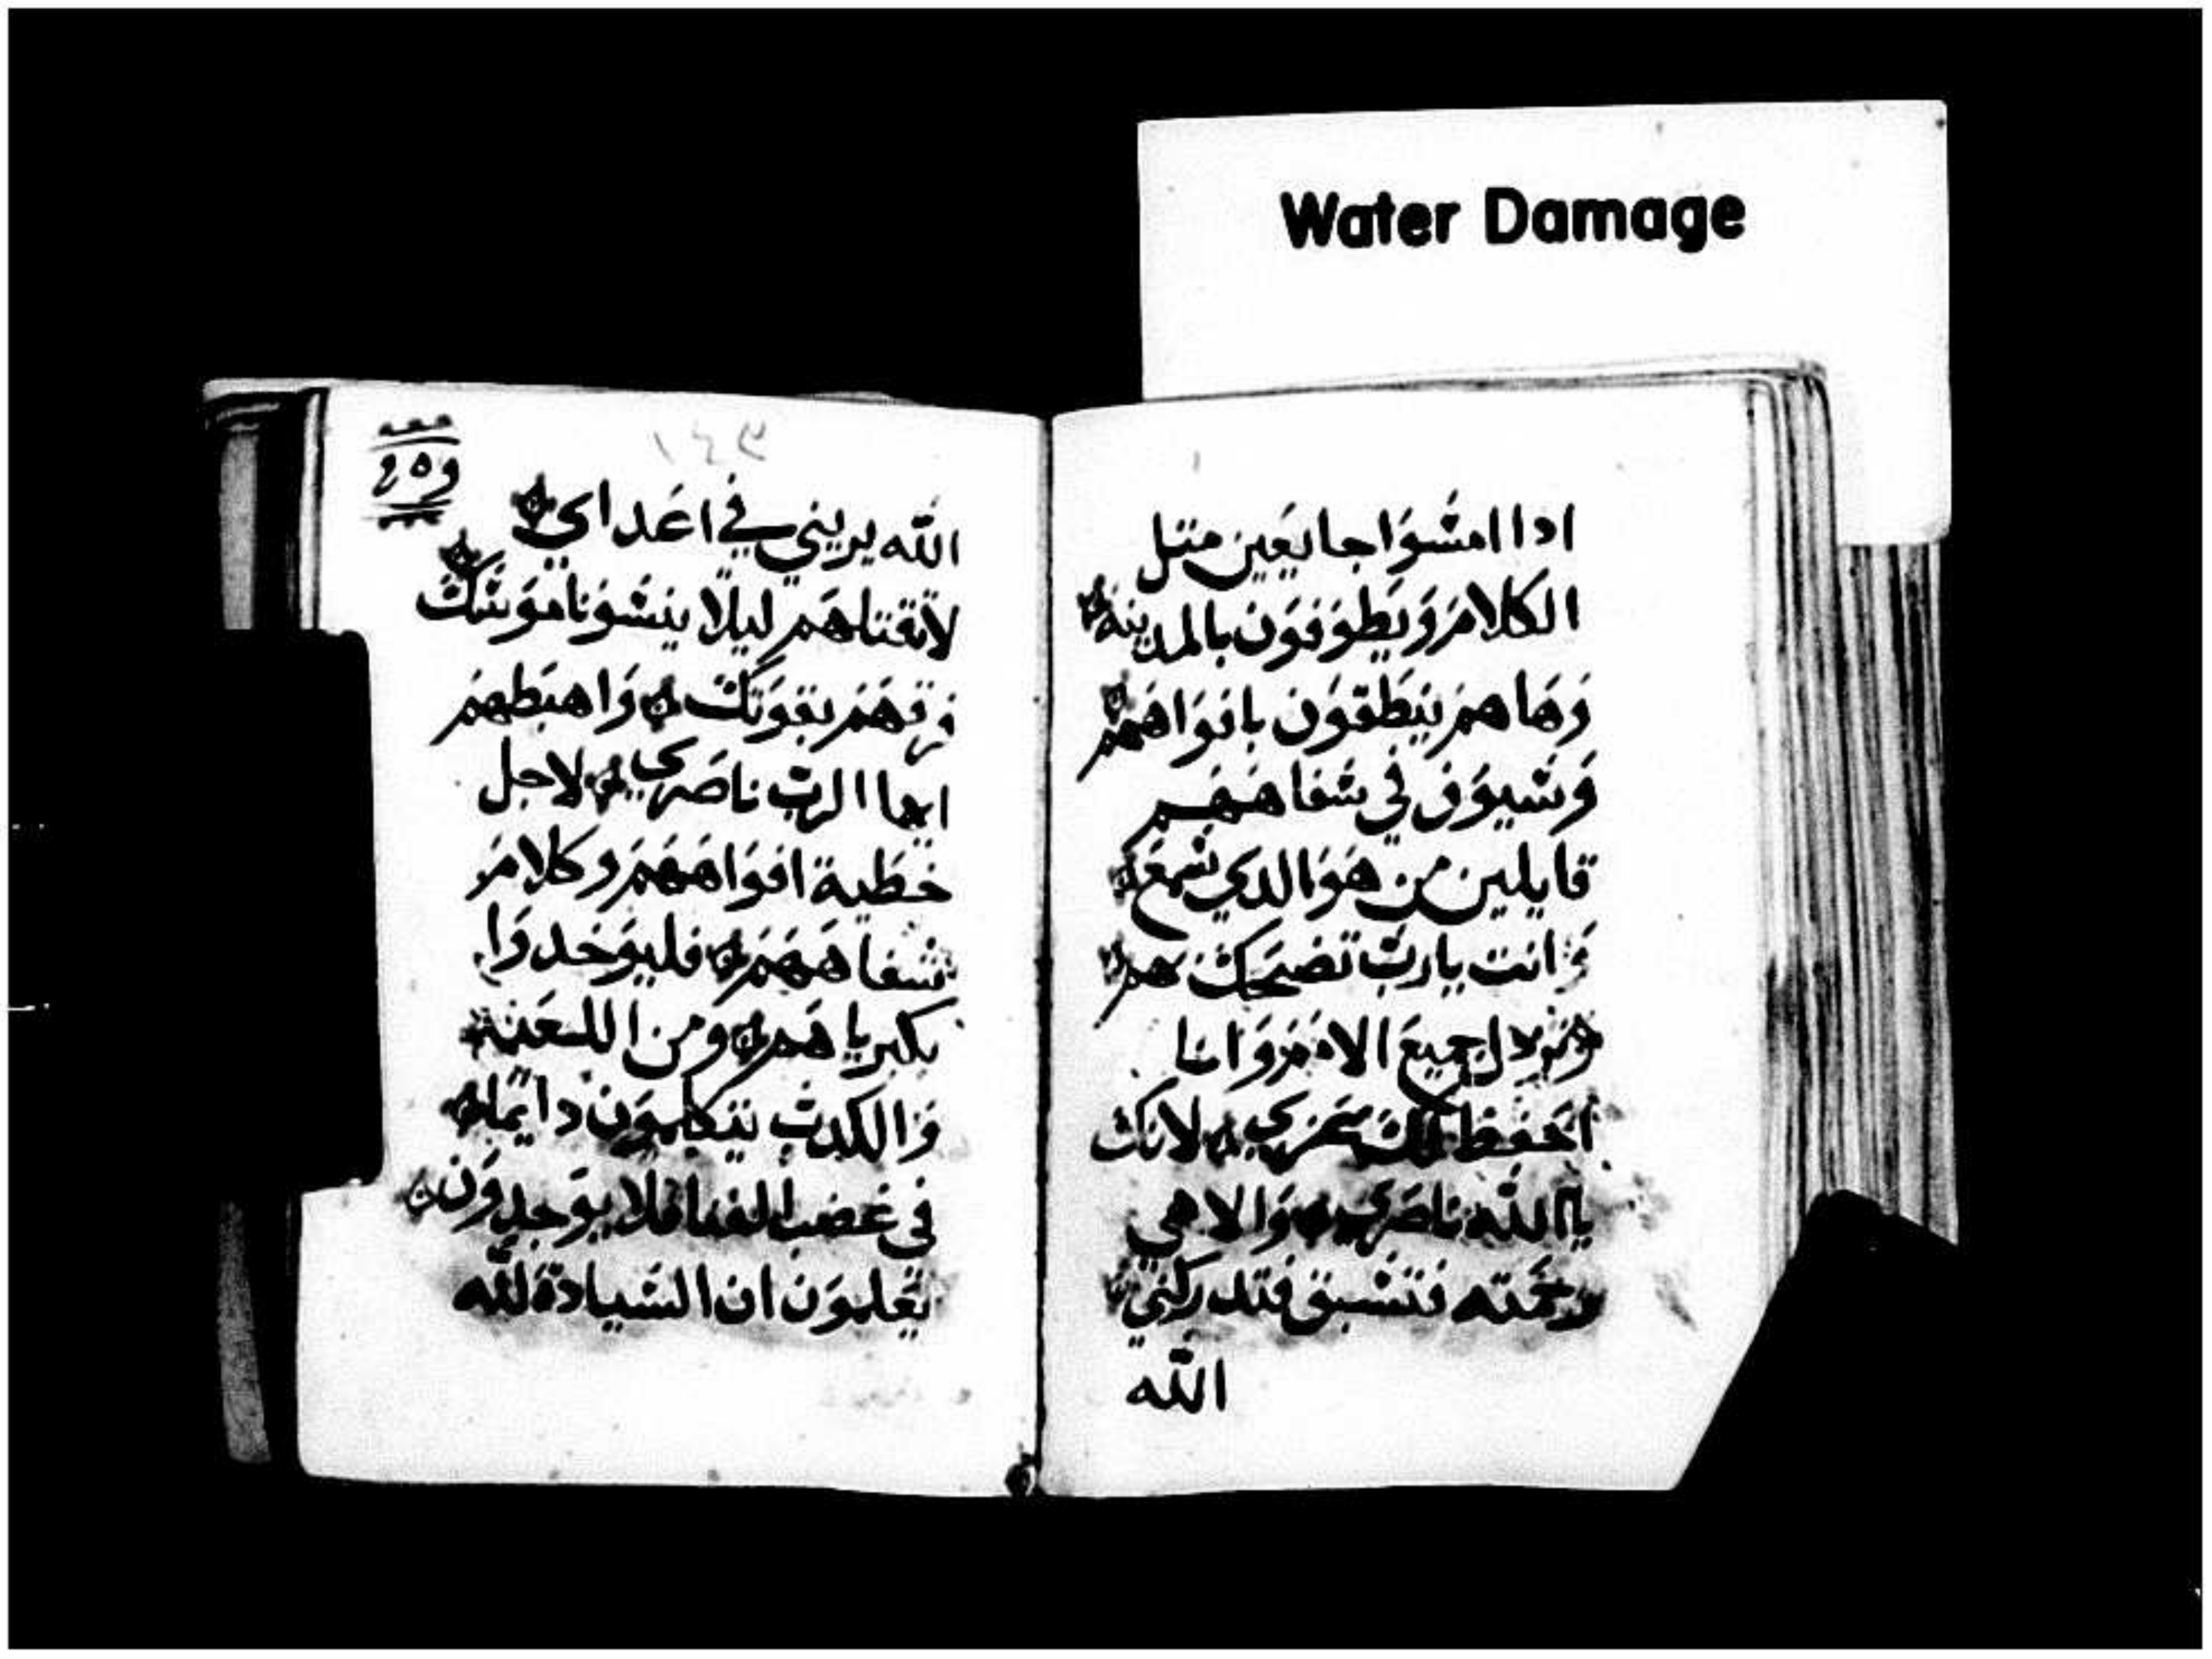 Water Damage
ادا امشوا جايعين متل
الكلام ويطوفون بالمدينه
وها هم ينطقون بافواههم
وسيوف في شفاههم
قايلين من هو الدي سمع
وانت يارب تضحك بهم
جميع الامم وانا
احفظ لك عزي لانك
يا الله ناصري والاهي
رحمته فتسبق فتدركني
الله
١٤٣
الله يريني في اعداي
لا تقتلهم ليلا ينسوا ناموسك
فرقهم بقوتك واهبطهم
ايها الرب ناصري لاجل
خطية افواههم وكلام
شفاههم فليوخدوا
بكبرياهم ومن اللعنة
والكدب يتكلمون دايما
في غضب الفنا فلا يوجدون
يعلمون ان السيادة لله